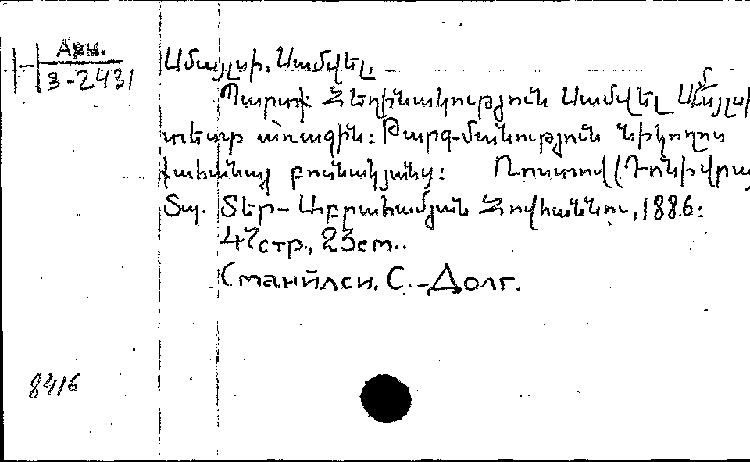 Арм.
3-2431
Սմայլսի, Սամվել.
Պարտք: Հեղինակություն Սամվել Սմայլսի
տետր առաջին: Թարգմանություն Նիկողոս
քահանայ բունակյանց: Ռոստով (Դոնի վրա
Տպ. Տեր-Աբրահամյան Հովհաննու, 1886:
47стр., 23см..
(Смайлси, С.-Долг.
8416